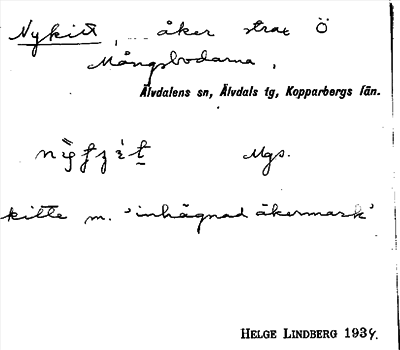 Nykitt, åker strax Ö
Mångsbodarna,
Älvdalens sn, Älvdals tg, Kopparbergs län.
Mgs.
kitte m. 'inhägnad åkermark'
HELGE LINDBERG 1934.